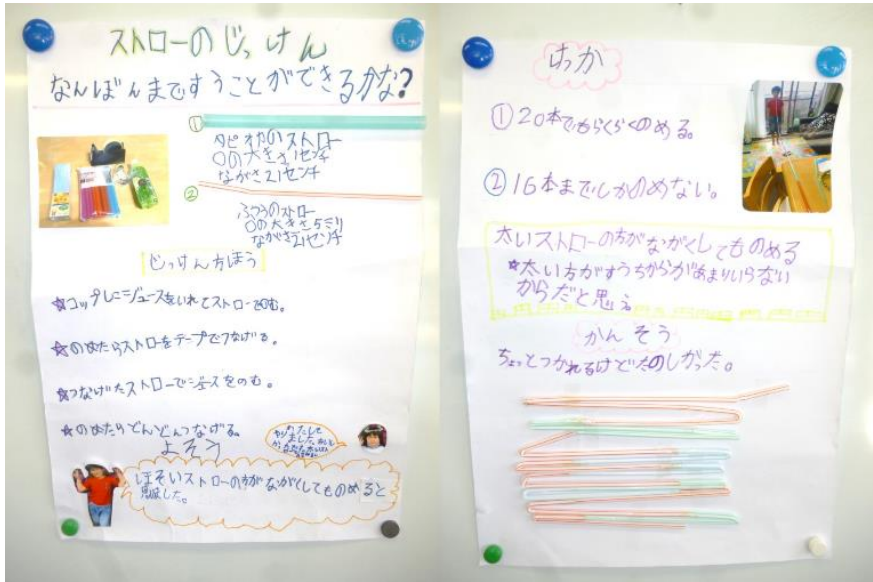 ストローのじっけん
なんぼんまですうことができるかな?
①
タピオカのストロー
○の大きさ1センチ
ながさ21センチ
②
ふつうのストロー
○の大きさ5ミリ
ながさ21センチ
じっけん方ほう
☆コップにジュースをいれてストローでのむ。
☆のめたらストローをテープでつなげる。
☆つなげたストローでジュースをのむ。
☆のめたらどんどんつなげる。
よそう
ほそいストローの方がながくしてものめると
思いました。
けっか
①20本でもらくらくのめる。
②16本までしかのめない。
太いストローの方がながくしてものめる
☆太い方がすうちからがあまりいらない
からだと思う
かんそう
ちょっとつかれるけどたのしかった。